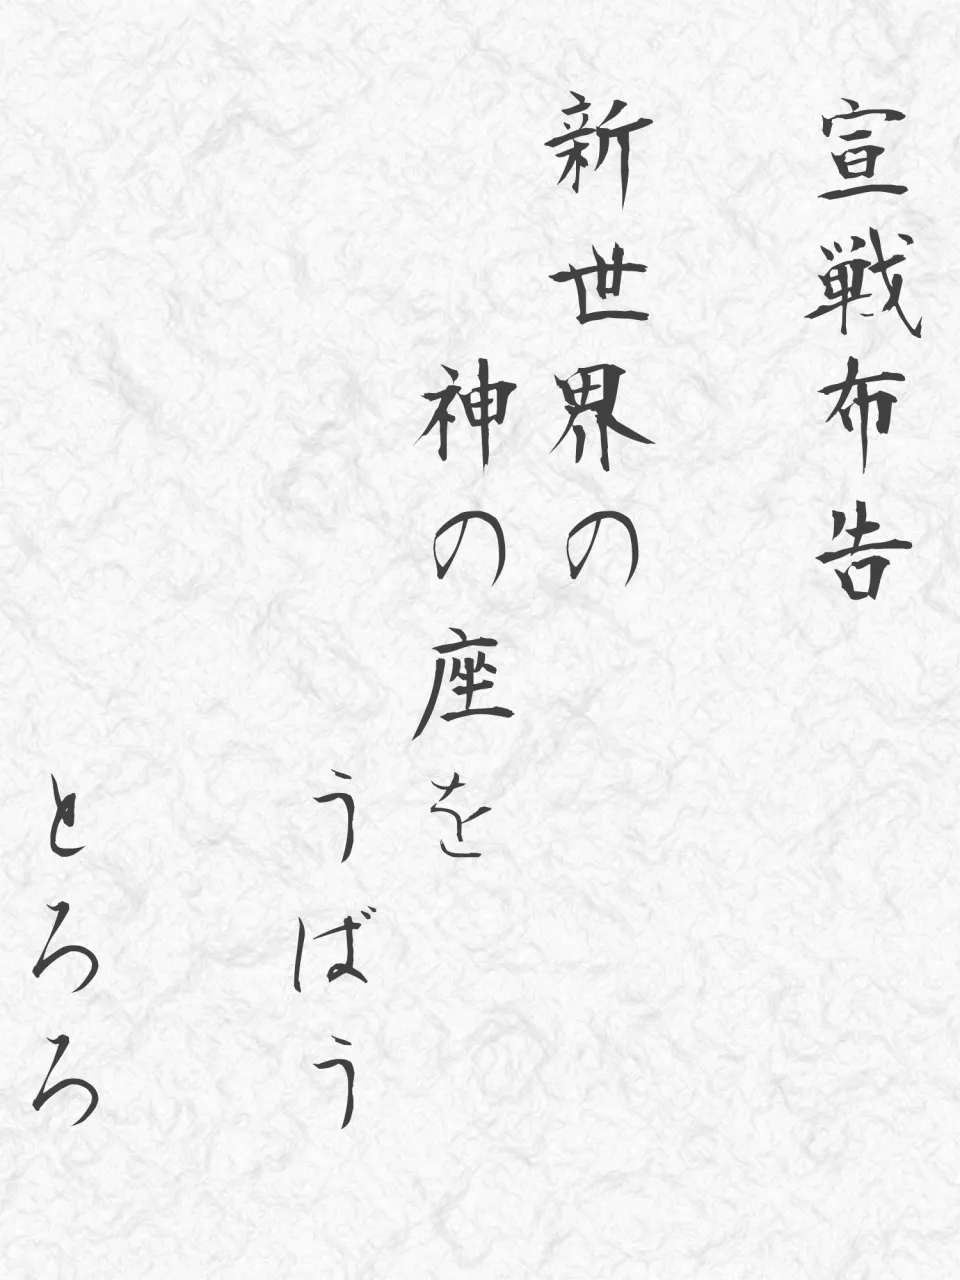 宣戦布告
新世界の
神の座を
うばう
とろろ